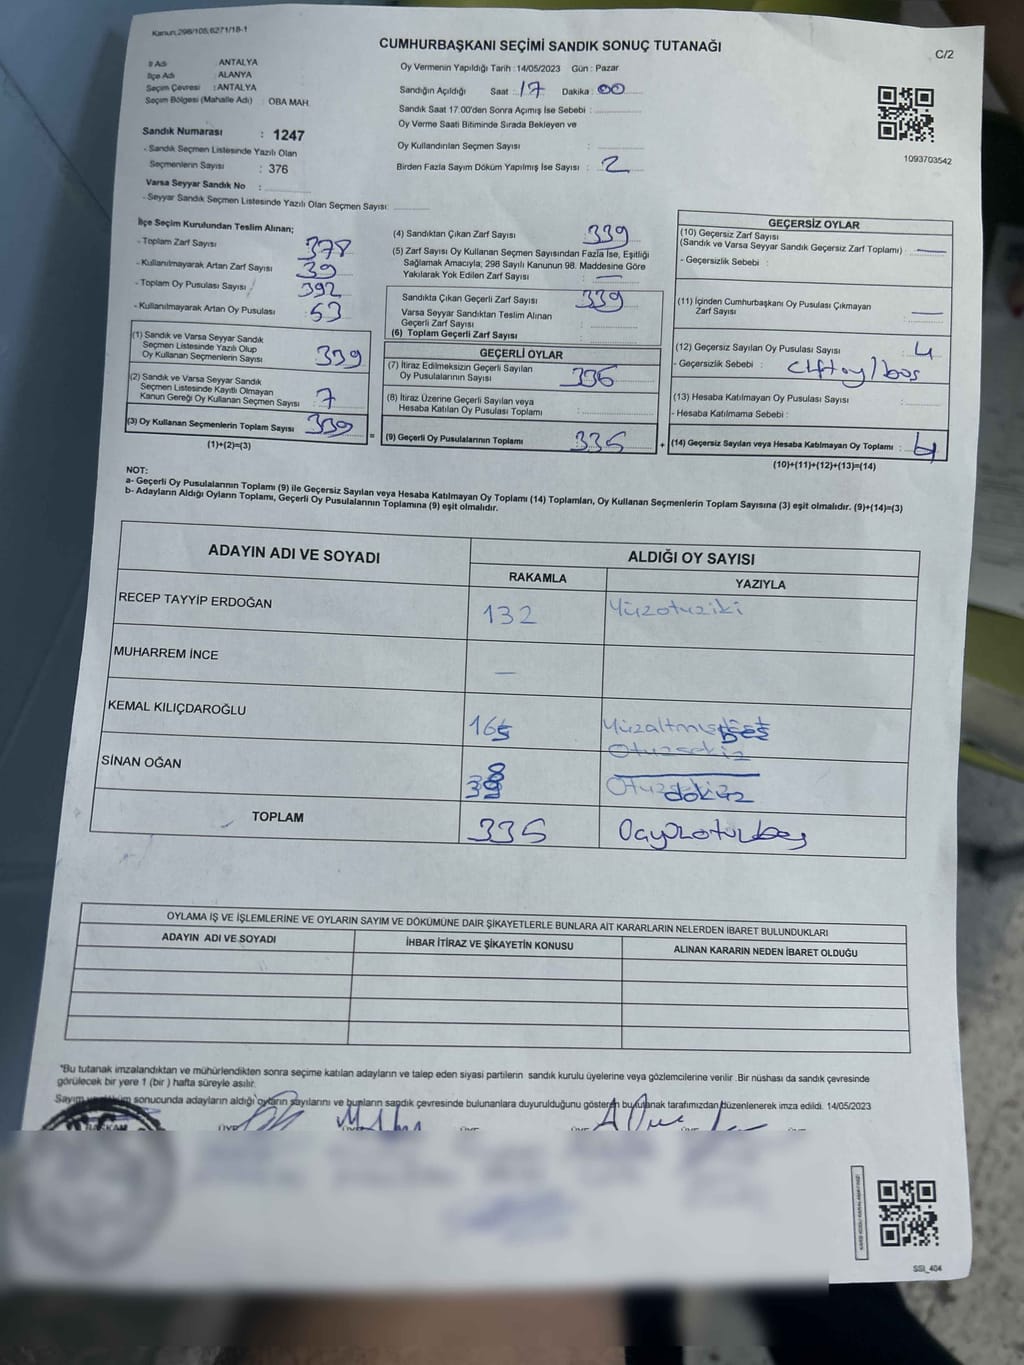 Kanun;298/105;6271/18-1
CUMHURBAŞKANI SEÇİMİ SANDIK SONUÇ TUTANAĞI
C/2
İl Adı : ANTALYA
İlçe Adı : ALANYA
Seçim Çevresi : ANTALYA
Seçim Bölgesi (Mahalle Adı) : OBA MAH.
Sandık Numarası : 1247
- Sandık Seçmen Listesinde Yazılı Olan
Seçmenlerin Sayısı : 376
Varsa Seyyar Sandık No :
- Seyyar Sandık Seçmen Listesinde Yazılı Olan Seçmen Sayısı:
Oy Vermenin Yapıldığı Tarih : 14/05/2023 Gün : Pazar
Sandığın Açıldığı Saat : 17 Dakika : 00
Sandık Saat 17:00'den Sonra Açımış İse Sebebi :
Oy Verme Saati Bitiminde Sırada Bekleyen ve
Oy Kullandırılan Seçmen Sayısı :
Birden Fazla Sayım Döküm Yapılmış İse Sayısı : 2
1093703542
İlçe Seçim Kurulundan Teslim Alınan;
- Toplam Zarf Sayısı : 378
- Kullanılmayarak Artan Zarf Sayısı : 39
- Toplam Oy Pusulası Sayısı : 392
- Kullanılmayarak Artan Oy Pusulası : 53
(1) Sandık ve Varsa Seyyar Sandık
Seçmen Listesinde Yazılı Olup
Oy Kullanan Seçmenlerin Sayısı : 339
(2) Sandık ve Varsa Seyyar Sandık
Seçmen Listesinde Kayıtlı Olmayan
Kanun Gereği Oy Kullanan Seçmen Sayısı : 7
(3) Oy Kullanan Seçmenlerin Toplam Sayısı : 339
(1)+(2)=(3)
(4) Sandıktan Çıkan Zarf Sayısı : 339
(5) Zarf Sayısı Oy Kullanan Seçmen Sayısından Fazla İse, Eşitliği
Sağlamak Amacıyla, 298 Sayılı Kanunun 98. Maddesine Göre
Yakılarak Yok Edilen Zarf Sayısı : —
Sandıkta Çıkan Geçerli Zarf Sayısı : 339
Varsa Seyyar Sandıktan Teslim Alınan
Geçerli Zarf Sayısı :
(6) Toplam Geçerli Zarf Sayısı :
GEÇERLİ OYLAR
(7) İtiraz Edilmeksizin Geçerli Sayılan
Oy Pusulalarının Sayısı : 336
(8) İtiraz Üzerine Geçerli Sayılan veya
Hesaba Katılan Oy Pusulası Toplamı :
= (9) Geçerli Oy Pusulalarının Toplamı : 335
GEÇERSİZ OYLAR
(10) Geçersiz Zarf Sayısı
(Sandık ve Varsa Seyyar Sandık Geçersiz Zarf Toplamı) : —
- Geçersizlik Sebebi :
(11) İçinden Cumhurbaşkanı Oy Pusulası Çıkmayan
Zarf Sayısı : —
(12) Geçersiz Sayılan Oy Pusulası Sayısı : 4
- Geçersizlik Sebebi : Çift oy/boş
(13) Hesaba Katılmayan Oy Pusulası Sayısı :
- Hesaba Katılmama Sebebi :
+ (14) Geçersiz Sayılan veya Hesaba Katılmayan Oy Toplamı : 4
(10)+(11)+(12)+(13)=(14)
NOT:
a- Geçerli Oy Pusulalarının Toplamı (9) ile Geçersiz Sayılan veya Hesaba Katılmayan Oy Toplamı (14) Toplamları, Oy Kullanan Seçmenlerin Toplam Sayısına (3) eşit olmalıdır. (9)+(14)=(3)
b- Adayların Aldığı Oyların Toplamı, Geçerli Oy Pusulalarının Toplamına (9) eşit olmalıdır.
ADAYIN ADI VE SOYADI
ALDIĞI OY SAYISI
RAKAMLA YAZIYLA
RECEP TAYYİP ERDOĞAN 132 Yüzotuziki
MUHARREM İNCE —
KEMAL KILIÇDAROĞLU 165 Yüzaltmışbeş
Otuzsekiz
SİNAN OĞAN Otuz dokuz
TOPLAM 335 Üçyüzotuzbeş
OYLAMA İŞ VE İŞLEMLERİNE VE OYLARIN SAYIM VE DÖKÜMÜNE DAİR ŞİKAYETLERLE BUNLARA AİT KARARLARIN NELERDEN İBARET BULUNDUKLARI
ADAYIN ADI VE SOYADI İHBAR İTİRAZ VE ŞİKAYETİN KONUSU ALINAN KARARIN NEDEN İBARET OLDUĞU
"Bu tutanak imzalandıktan ve mühürlendikten sonra seçime katılan adayların ve talep eden siyasi partilerin sandık kurulu üyelerine veya gözlemcilerine verilir .Bir nüshası da sandık çevresinde
görülecek bir yere 1 (bir ) hafta süreyle asılır.
Sayım ve döküm sonucunda adayların aldığı oyların sayılarını ve bunların sandık çevresinde bulunanlara duyurulduğunu gösteren bu tutanak tarafımızdan düzenlenerek imza edildi. 14/05/2023
BAŞKAN ÜYE ÜYE ÜYE ÜYE ÜYE ÜYE
SSI_404